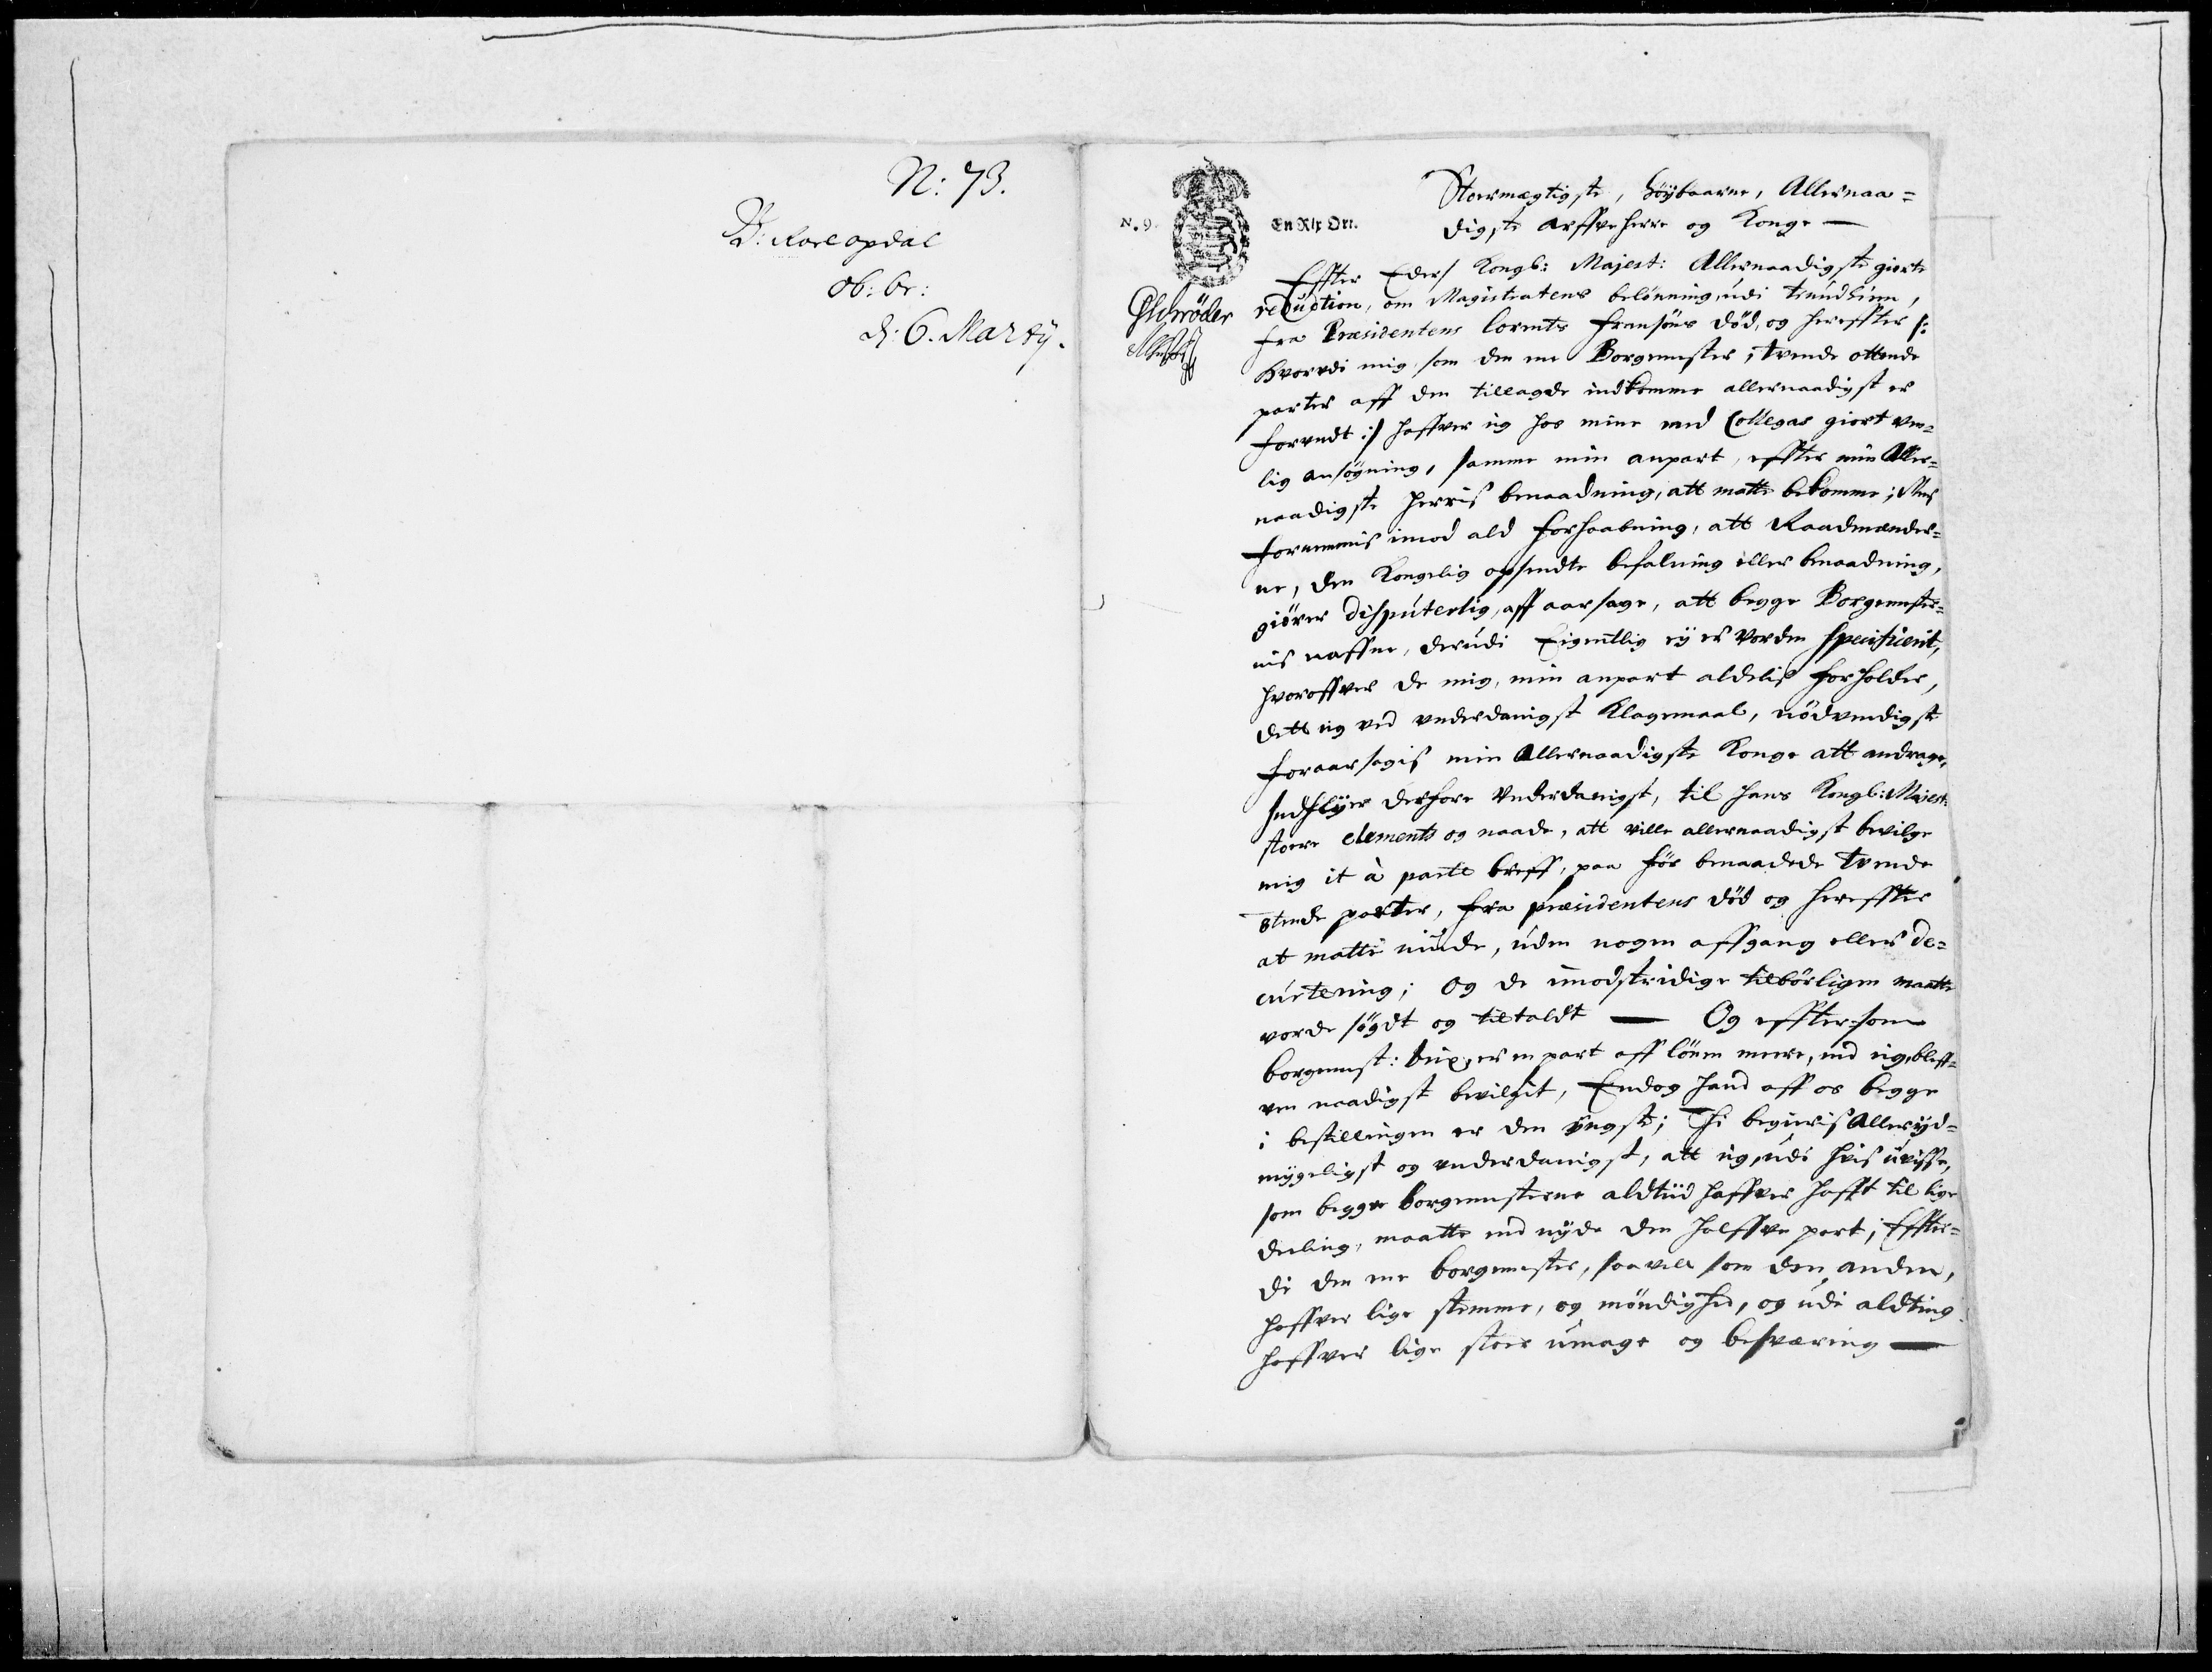 N: 73.
B: Roelopdal
ob: br:
d: 6. Marty.
N. 9.
En Rix Ort.
Schrøder
Stoermegtigste, Høybaarne, Allernaa=
digste Arffveherre og Konge —
Effter Eders Kongl: Majest: Allernaadigste giorte
reduction, om Magistratens belønning udi Trundhiem,
fra Præsidentens Lorents Fransøns død, og hereffter /:
Hvorudi mig som den ene Borgemester, trende ottende
parter aff den tillagde indkomme allernaadigst er
forundt :/ haffver jeg hos mine med Collegas giort ven=
lig ansøgning, samme min anpart, effter min Aller=
naadigste Herris benaadning, att motte bekomme; Men
fornemmis imod ald forhaabning, att Raadmænder=
ne, den Kongelig opsendte befalning eller benaadning,
giører disputerlig, aff aarsage, att begge Borgemester=
nis naffne, derudi Eigentlig ey er vorden specificerit,
hvoroffver de mig, min anpart aldelis forholder,
dett jeg ved underdanigst Klagemaal, nødvendigst
foraarsagis min Allernaadigste Konge att andrage,
Indflyer derfore Underdanigst, til hans Kongl: Majest:
stoere clements og naade, att ville allernaadigst bevilge
mig it à parte breff, paa før benaadede trende
8tende parter, fra præsidentens død og hereffter
at motte niude, uden nogen affgang eller de=
curtering; og de imodstridige tilbørligen maatte
vorde søgdt og tiltaldt — Og effter som
borgemest: Dux, er en part aff lønen meere, end jeg, bleff=
ven naadigst bevilgit, Endog hand aff os begge
i bestillingen er den yngste; Thi begieris Allerÿd=
mygeligst og underdanigst, att jeg, udi hvis uvisse,
som begge borgemesterne aldtiid haffver hafft til lige
deeling, maatte end nyde den halffve part; Effter=
di den ene borgemester, saavell som den anden,
haffver lige stemme, og møndighed, og udi aldting
haffver lige stoer umage og besværing —